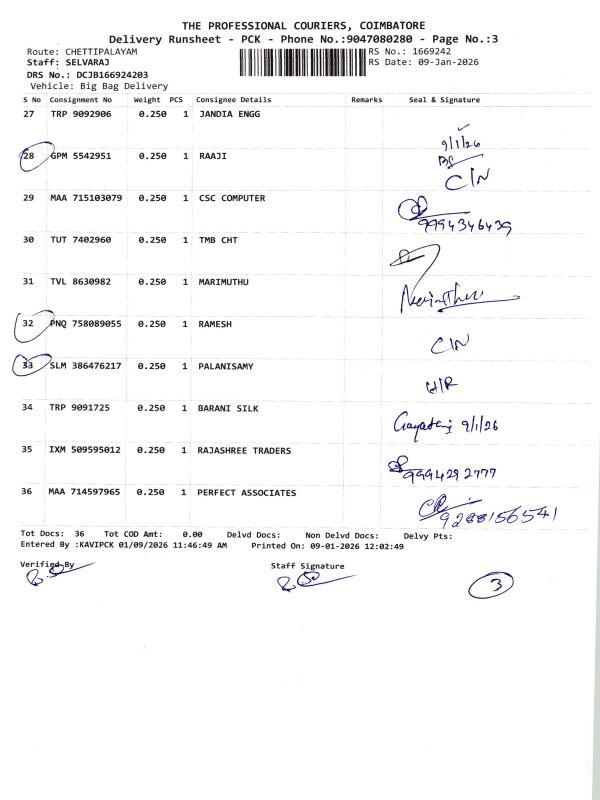 THE PROFESSIONAL COURIERS, COIMBATORE
Delivery Runsheet - PCK - Phone No.:9047080280 - Page No.:3
Route: CHETTIPALAYAM RS No.: 1669242
Staff: SELVARAJ RS Date: 09-Jan-2026
DRS No.: DCJB166924203
Vehicle: Big Bag Delivery
S No Consignment No Weight PCS Consignee Details Remarks Seal & Signature
27 TRP 9092906 0.250 1 JANDIA ENGG
9/1/26
28 GPM 5542951 0.250 1 RAAJI
C/N
29 MAA 715103079 0.250 1 CSC COMPUTER
9994346439
30 TUT 7402960 0.250 1 TMB CHT
31 TVL 8630982 0.250 1 MARIMUTHU
32 PNQ 758089055 0.250 1 RAMESH
C/N
33 SLM 386476217 0.250 1 PALANISAMY
H/R
34 TRP 9091725 0.250 1 BARANI SILK
9/1/26
35 IXM 509595012 0.250 1 RAJASHREE TRADERS
9994292777
36 MAA 714597965 0.250 1 PERFECT ASSOCIATES
Tot Docs: 36 Tot COD Amt: 0.00 Delvd Docs: Non Delvd Docs: Delvy Pts:
Entered By :KAVIPCK 01/09/2026 11:46:49 AM Printed On: 09-01-2026 12:02:49
Verified By Staff Signature
3